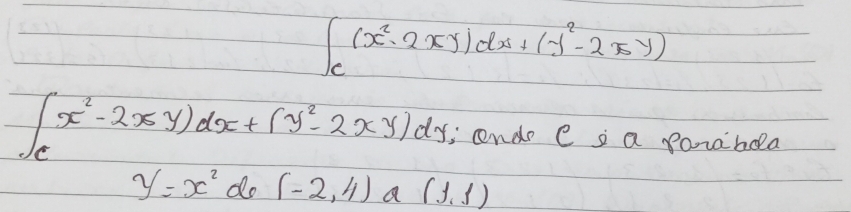 ∫_C (x² - 2xy)dx + (y² - 2xy)
∫_C x² - 2xy)dx + (y² - 2xy)dy; onde C é a parábola
y = x² de (-2,4) a (1,1)